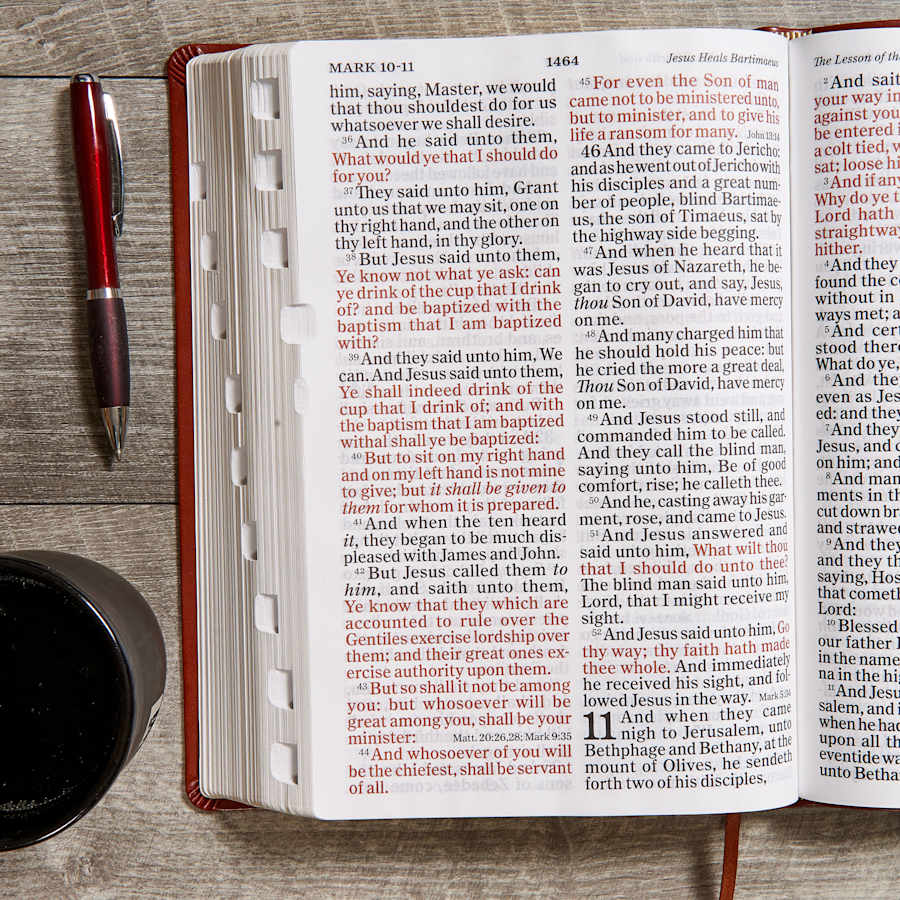 MARK 10-11
1464
Jesus Heals Bartimaeus
him, saying, Master, we would
that thou shouldest do for us
whatsoever we shall desire.
36 And he said unto them,
What would ye that I should do
for you?
37 They said unto him, Grant
unto us that we may sit, one on
thy right hand, and the other on
thy left hand, in thy glory.
38 But Jesus said unto them,
Ye know not what ye ask: can
ye drink of the cup that I drink
of? and be baptized with the
baptism that I am baptized
with?
39 And they said unto him, We
can. And Jesus said unto them,
Ye shall indeed drink of the
cup that I drink of; and with
the baptism that I am baptized
withal shall ye be baptized:
40 But to sit on my right hand
and on my left hand is not mine
to give; but it shall be given to
them for whom it is prepared.
41 And when the ten heard
it, they began to be much dis-
pleased with James and John.
42 But Jesus called them to
him, and saith unto them,
Ye know that they which are
accounted to rule over the
Gentiles exercise lordship over
them; and their great ones ex-
ercise authority upon them.
43 But so shall it not be among
you: but whosoever will be
great among you, shall be your
minister: Matt. 20:26,28; Mark 9:35
44 And whosoever of you will
be the chiefest, shall be servant
of all.
45 For even the Son of man
came not to be ministered unto,
but to minister, and to give his
life a ransom for many. John 13:14
46 And they came to Jericho:
and as he went out of Jericho with
his disciples and a great num-
ber of people, blind Bartimae-
us, the son of Timaeus, sat by
the highway side begging.
47 And when he heard that it
was Jesus of Nazareth, he be-
gan to cry out, and say, Jesus,
thou Son of David, have mercy
on me.
48 And many charged him that
he should hold his peace: but
he cried the more a great deal,
Thou Son of David, have mercy
on me.
49 And Jesus stood still, and
commanded him to be called.
And they call the blind man,
saying unto him, Be of good
comfort, rise; he calleth thee.
50 And he, casting away his gar-
ment, rose, and came to Jesus.
51 And Jesus answered and
said unto him, What wilt thou
that I should do unto thee?
The blind man said unto him,
Lord, that I might receive my
sight.
52 And Jesus said unto him, Go
thy way; thy faith hath made
thee whole. And immediately
he received his sight, and fol-
lowed Jesus in the way. Mark 5:34
11 And when they came
nigh to Jerusalem, unto
Bethphage and Bethany, at the
mount of Olives, he sendeth
forth two of his disciples,
The Lesson of th
2 And sait
your way in
against you
be entered i
a colt tied, w
sat; loose hi
3 And if any
Why do ye t
Lord hath
straightway
hither.
4 And they
found the co
without in
ways met; a
5 And cert
stood there
What do ye,
6 And the
even as Jes
ed: and they
7 And they
Jesus, and c
on him; and
8 And man
ments in th
cut down br
and strawed
9 And they
and they th
saying, Hos
that cometh
Lord:
10 Blessed
our father
in the name
na in the hig
11 And Jesu
salem, and i
when he had
upon all th
eventide wa
unto Betha